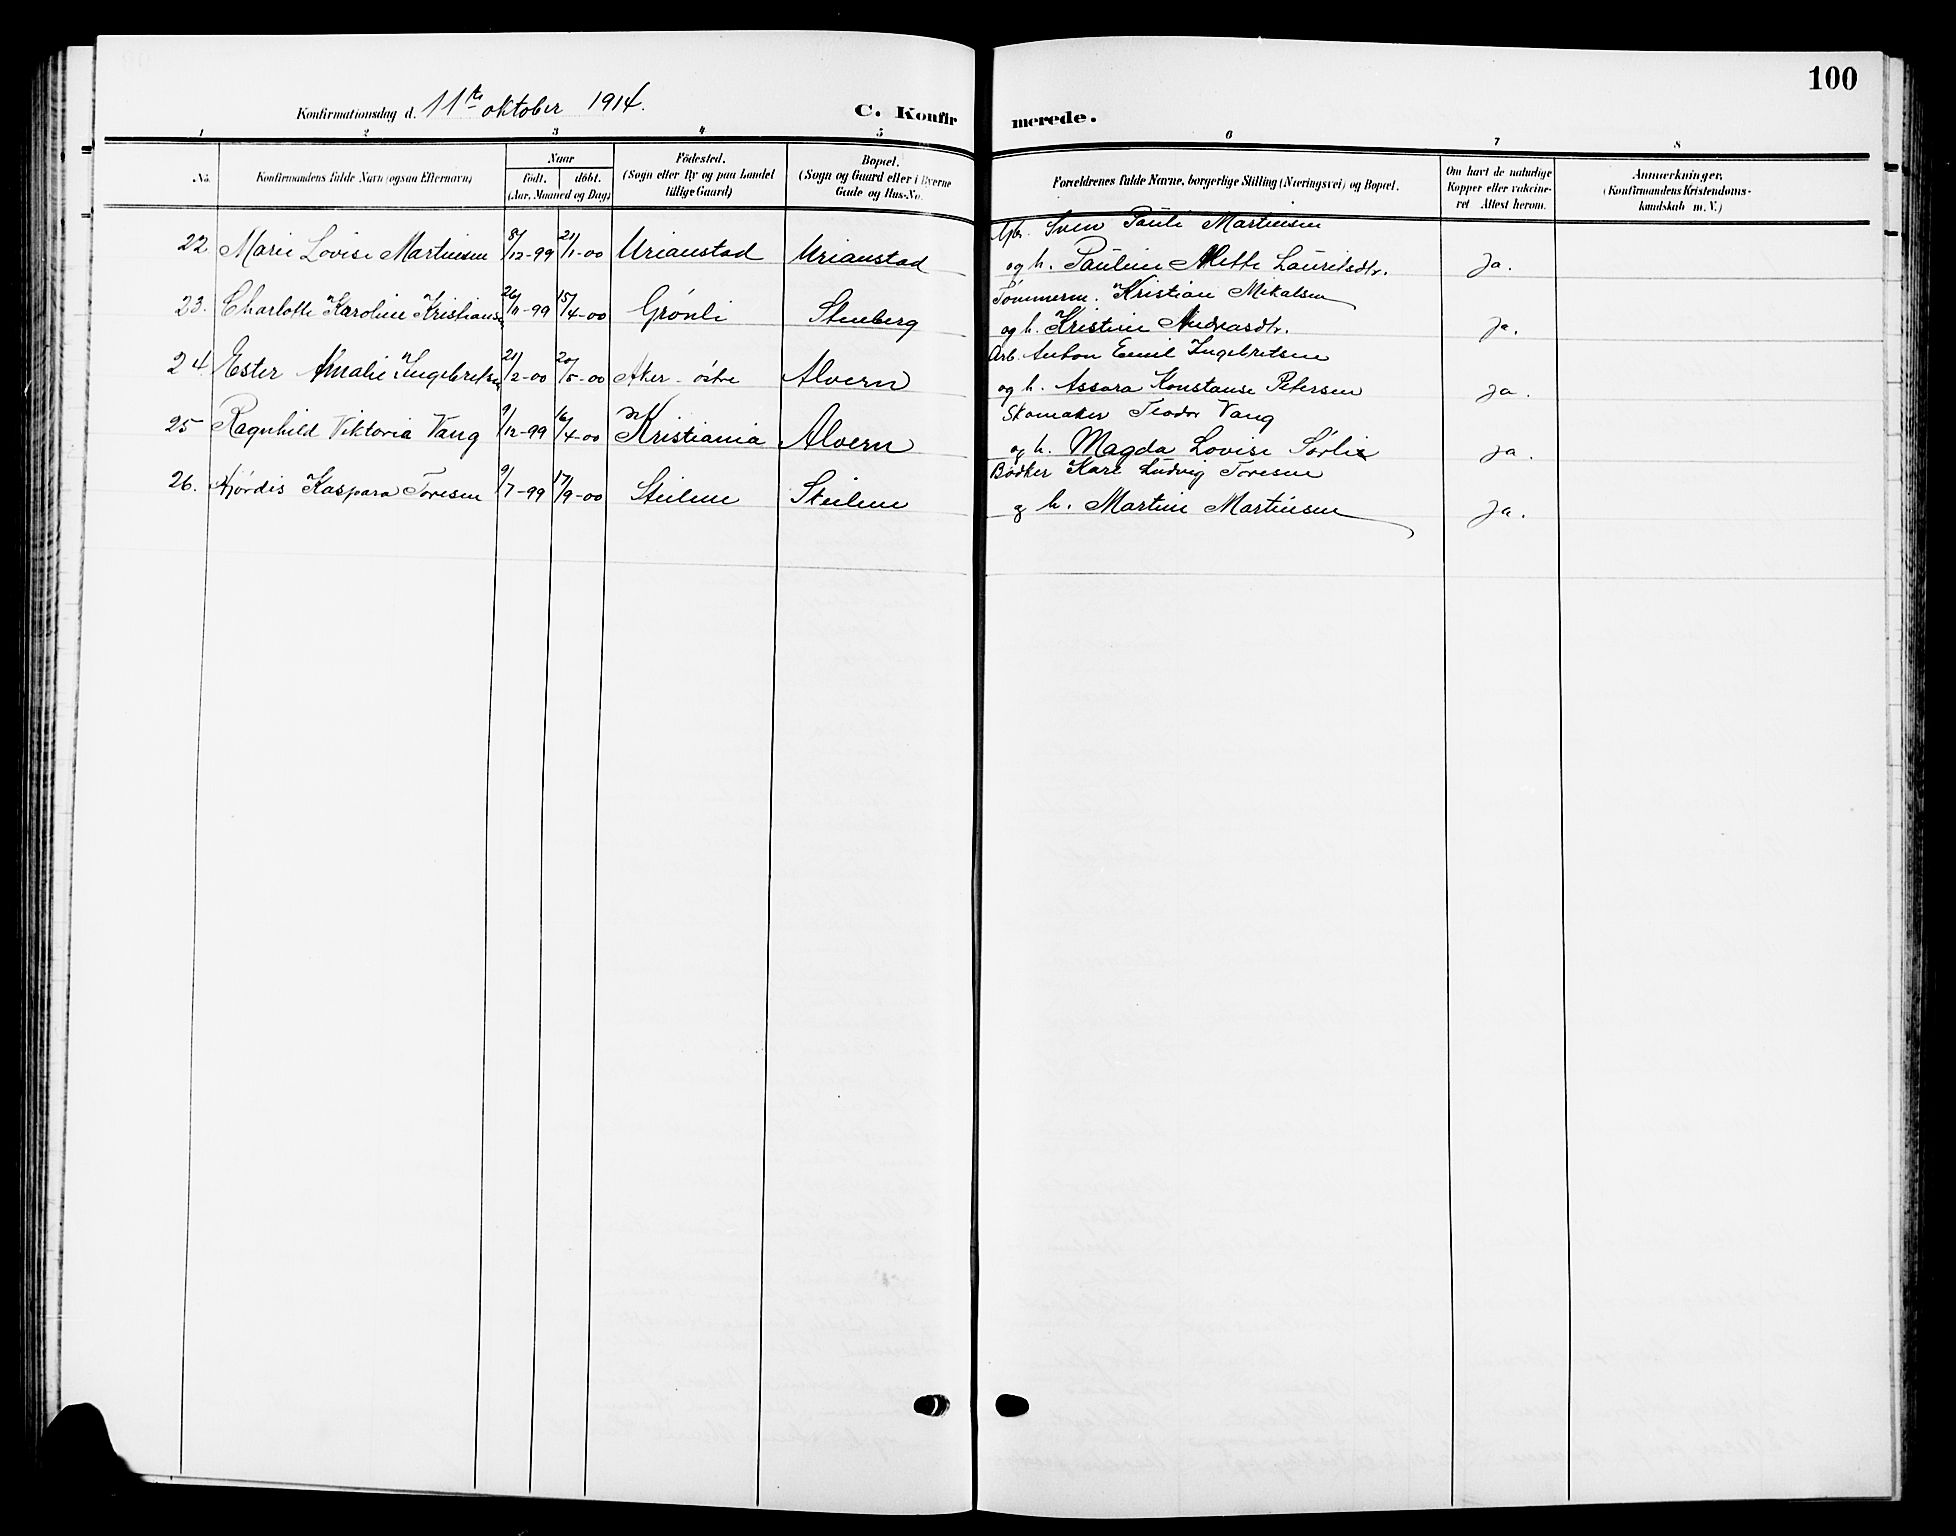 100
Konfirmationsdag d. 11te oktober 1914.
C. Konfirmerede.
1 2 3 4 5 6 7 8
No.
Konfirmandens fulde Navn (ogsaa Efternavn)
Naar
födt. döbt.
(Aar, Maaned og Dag)
Födested.
(Sogn eller By og paa Landet
tillige Gaard)
Bopæl.
(Sogn og Gaard eller i Byerne
Gade og Hus-No.
Forældrenes fulde Navne, borgerlige Stilling (Næringsvei) og Bopæl.
Om havt de naturlige
Kopper eller vakcine-
ret Attest herom.
Anmærkninger,
(Konfirmandens Kristendoms-
kundskab m. V.)
Sven Pauli Martinsen
22 Marie Lovise Martinsen 8/12-99 21/1-00 Urianstad Urianstad og h. Pauline Mette Lauritsdtr. Ja.
Tømmerm. Kristian Mikalsen
23. Charlotte Karoline Kristiansen 26/11-99 15/4-00 Grønli Stenberg og h. Kristine Andreasdtr. Ja.
Arb. Anton Emil Ingebretsen
24 Ester Amalie Ingebretsen 21/2-00 20/5-00 Aker østre Alvern og h. Assora Konstanse Petersen Ja.
Skomaker Teodor Vang
25 Ragnhild Viktoria Vang 9/12-99 16/4-00 Kristiania Alvern og h. Magda Lovise Sørlie Ja.
Bødker Karl Ludvig Toresen
26. Hjørdis Kaspara Toresen 9/7-99 17/9-00 Steilene Steilene og h. Martine Martinsen Ja.